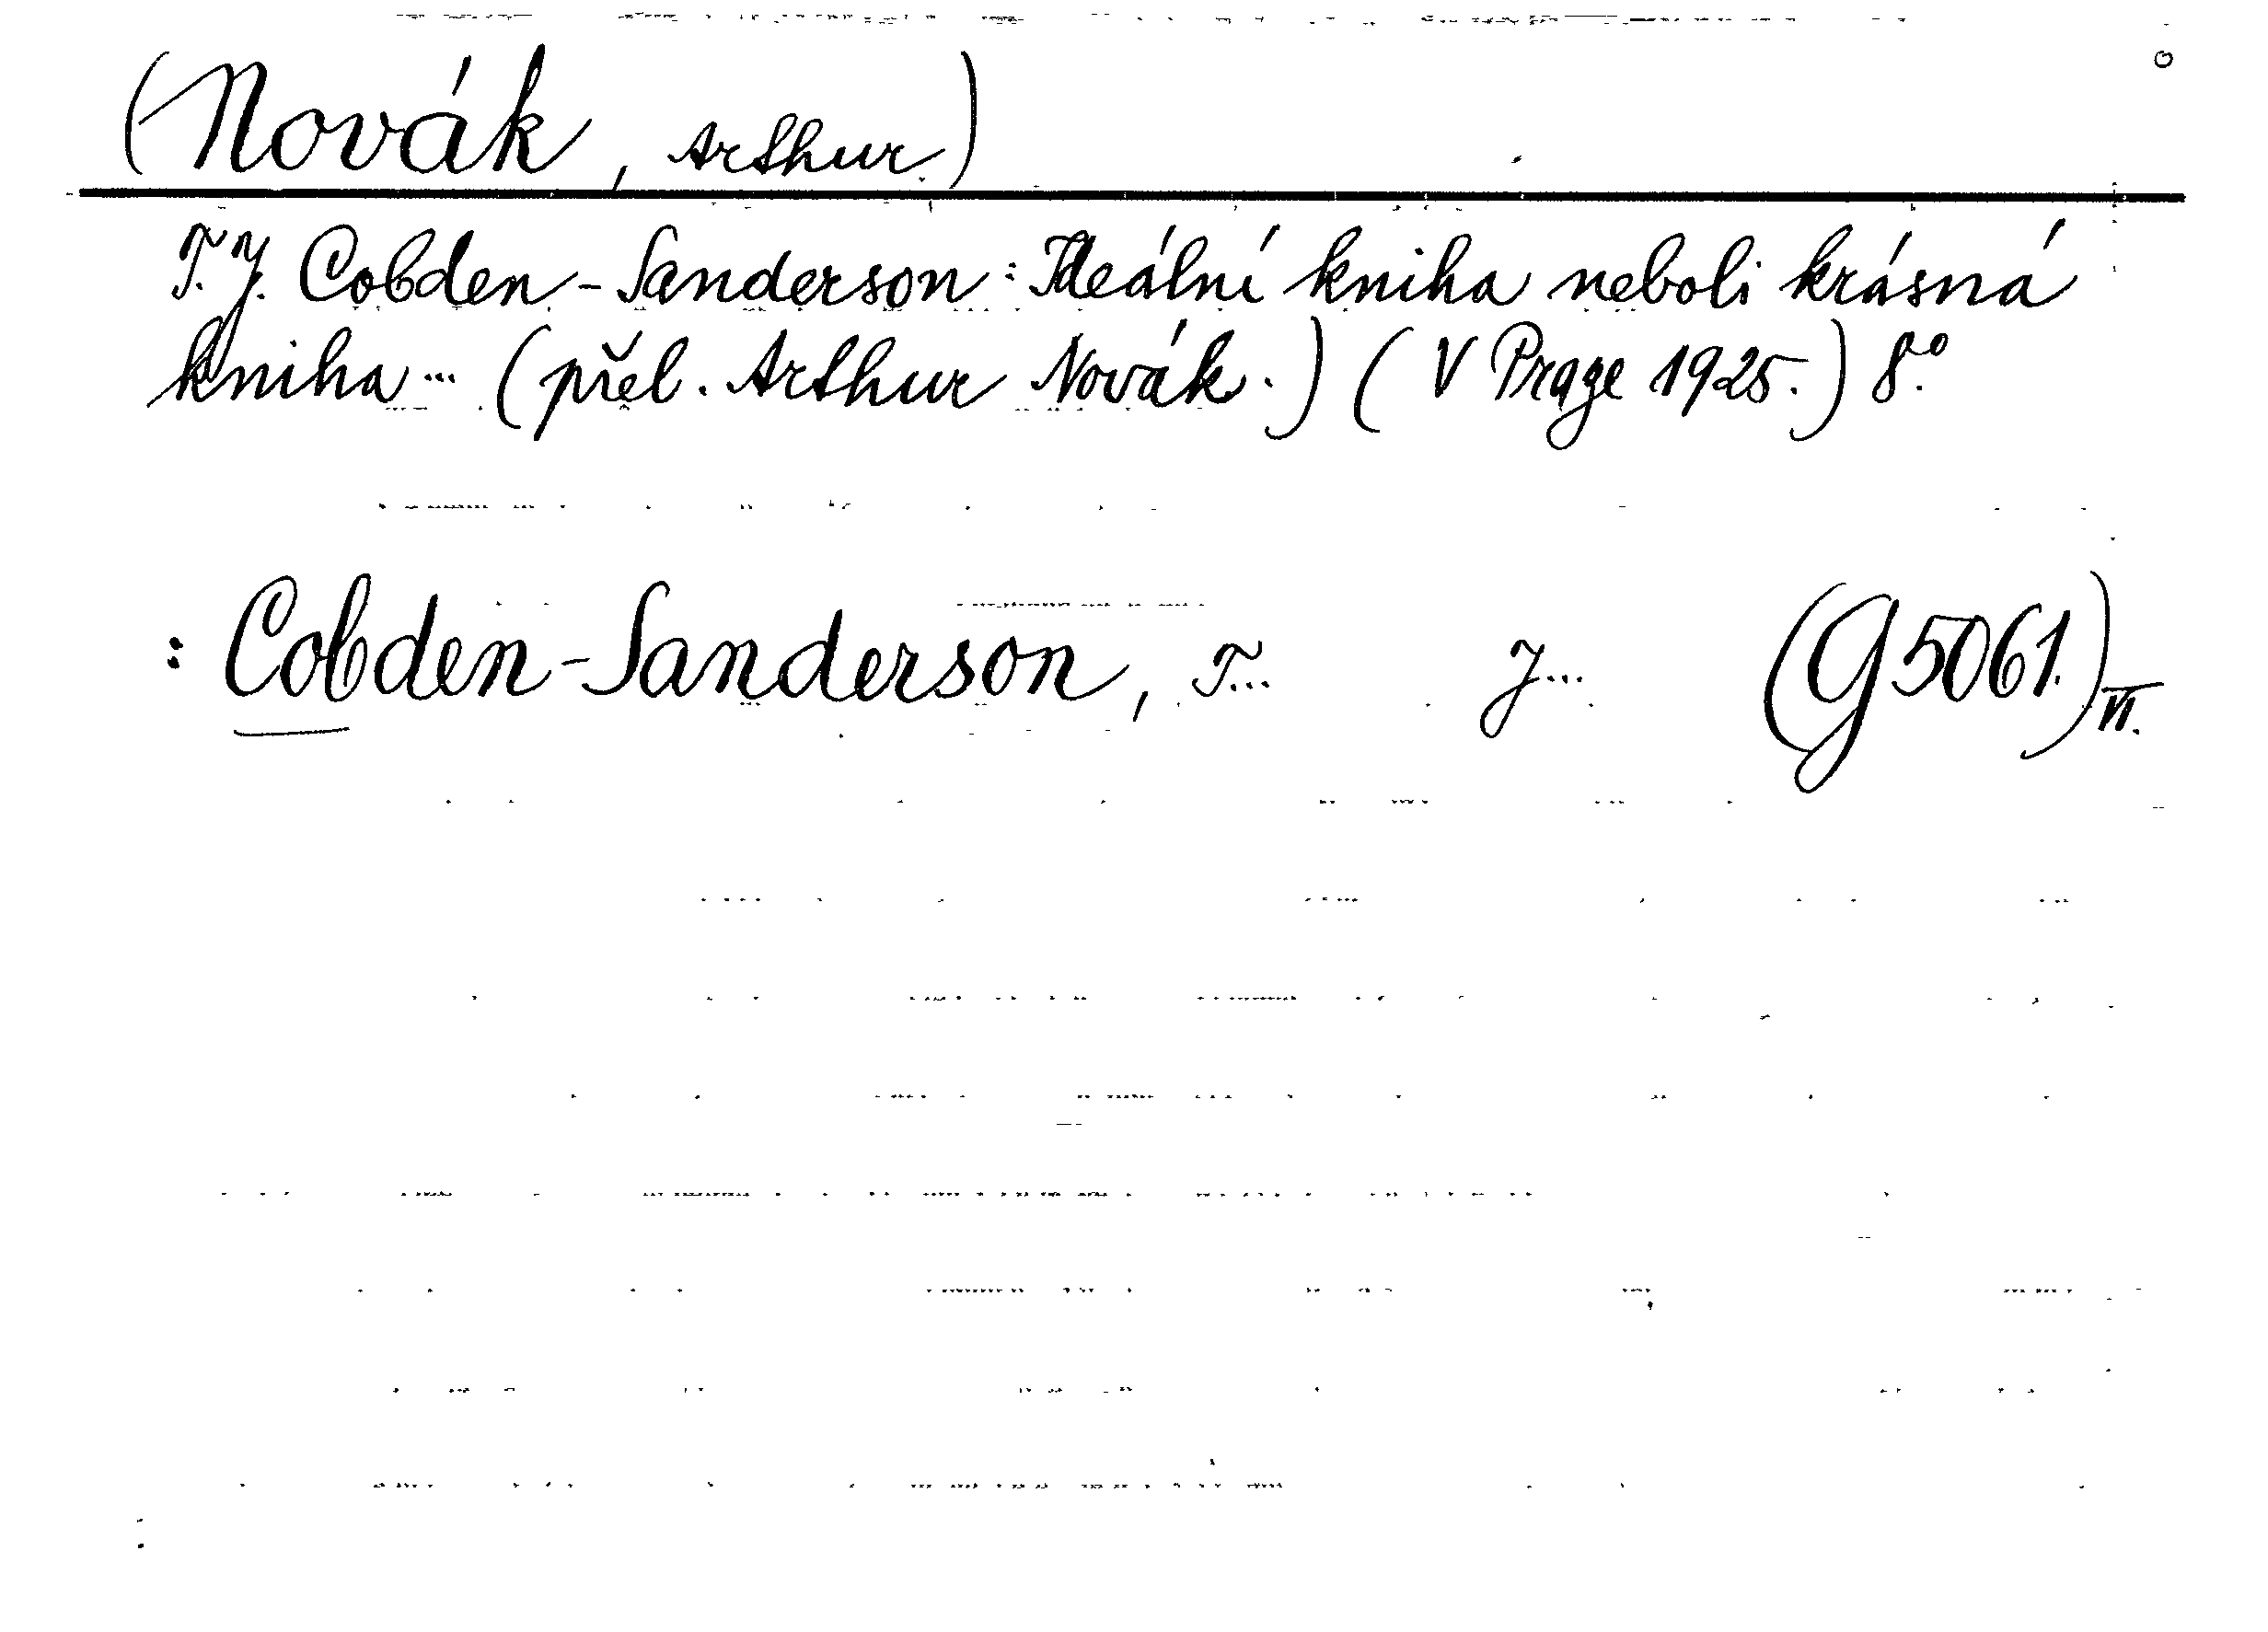 (Novák, Arthur.)
T. J. Cobden-Sanderson: Ideální kniha neboli krásná
kniha... (přel. Arthur Novák.) (V Praze 1925.) 8.°
: Cobden-Sanderson, T... J... (G 5061.) VI.